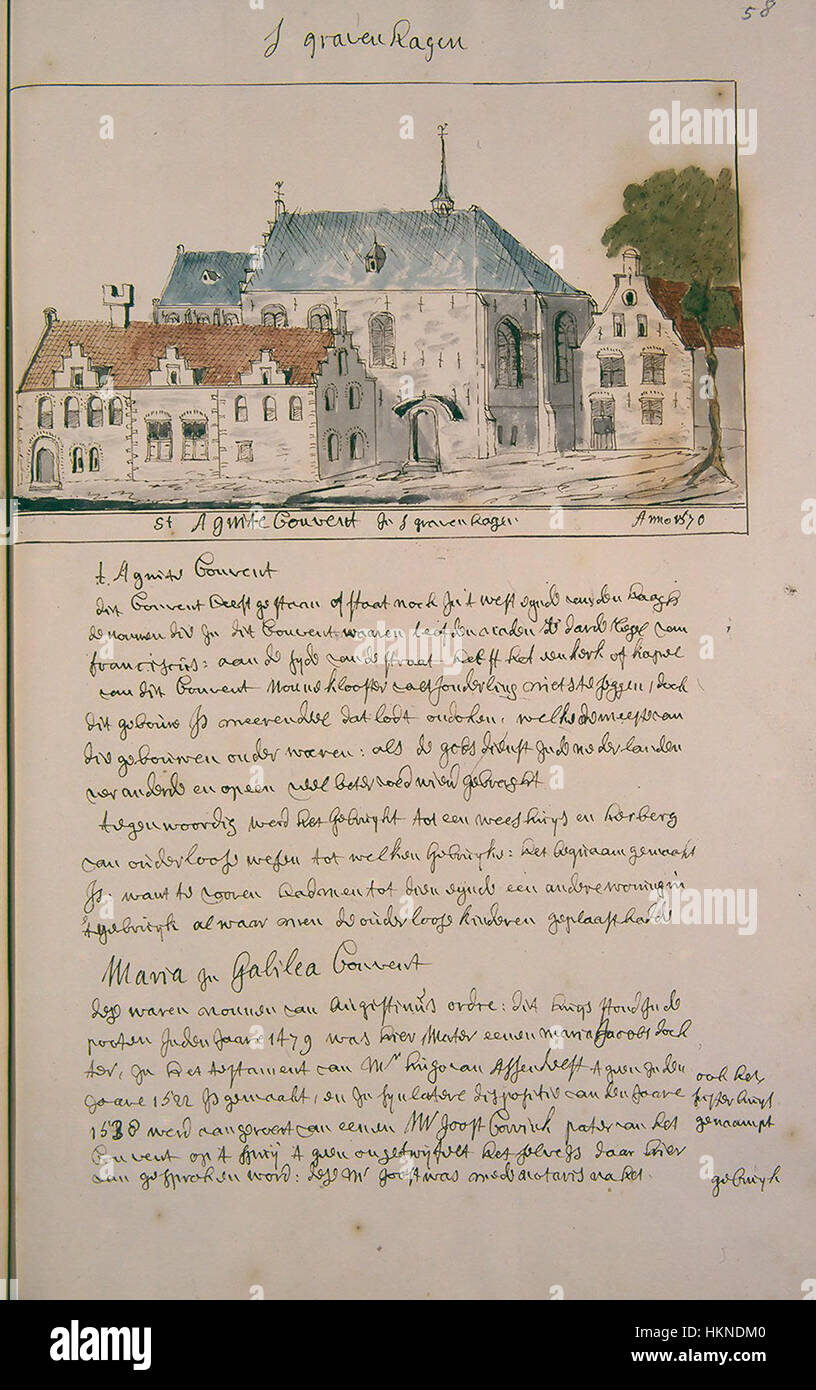 58
S gravenhagen
St Agnite Convent In S gravenhagen Anno 1570
t. Agnite Convent
dit Convent heeft gestaan of staat noch In t west eynde van den haagh
de nonnen die In dit Convent waaren leefden naden de darde Regel van
francisois: aan de syde van de straat heeft het een kerk of kapel
van dit Convent Nonne klooster valt sonderling niet ste seggen, doch
dit gebouw Is meerendeel dat lodt ondoken, welke de meeste van
die gebouwen onder waren: als de gods dienst Inde nederlanden
veranderde en op een veel beter voed wierd gebracht
tegenwoordig werd het gebruykt tot een weeshuys en herberg
van ouderloose wesen tot welken gebruyke: het bequaam gemaakt
Is. want te vooren had men tot dien eynde een andere woning in
't gebruyk alwaar men de ouderloose kinderen geplaast hadde
Maria In Galilea Convent
dese waren nonnen van Augustinus ordre: dit huys stond In de
pooten In den Jaare 1479 was hier Mater eenen maria Jacobs doch
ter, In het testament van Mr hugo van Assendelft t geen In den
Jaare 1522 Is gemaakt, en In syn latere dispositie van den Jaare
1538 werd aangeroert van eenen Mr Joost pater van het
Convent op t spuy t geen ongetwyfelt het selve Is daar hier
van gesproken word: dese Mr Joost was mede notaris na het
ook het
susterhuys
genaampt
gebruyk
alamy
Image ID: HKNDM0
www.alamy.com